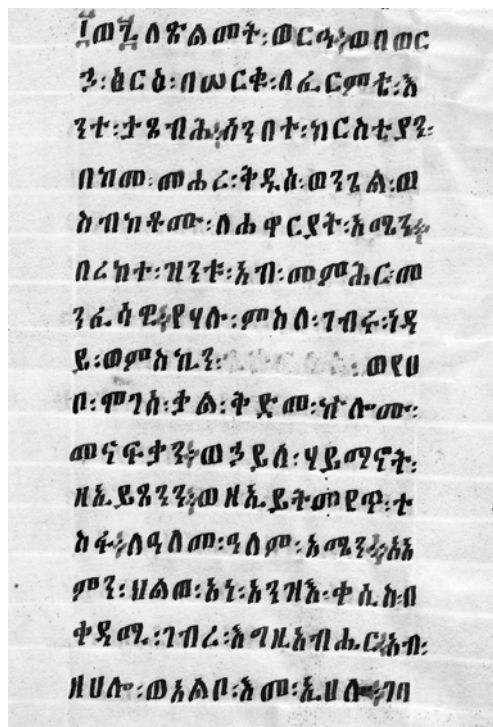 ፲ወ፯ ለጽልመት፡ወርዓ፡ወበወር
ኃ፡ፅርዕ፡በሠርቁ፡ለፈርምቲ፡እ
ንተ፡ታጼብሕ፡አንበተ፡ክርስቲያን፡
በከመ፡መሐረ፡ቅዱስ፡ወንጌል፡ወ
ስብከቶሙ፡ለሐዋርያት፡አሜን።
በረከተ፡ዝንቱ፡አብ፡መምሕር፡መ
ንፈሳዊ፡የሃሉ፡ምስለ፡ገብሩ፡ነዳ
ይ፡ወምስኪን፡ ወየሀ
ቦ፡ሞገሰ፡ቃል፡ቅድመ፡ኵሎሙ፡
መናፍቃን፡ወኃይለ፡ሃይማኖት፡
ዘኢይጸንን፡ወዘኢይትመየጥ፡ተ
ስፋ፡ለዓለመ፡ዓለም፡አሜን።አአ
ምን፡ህልወ፡አነ፡እንዝእ፡ቀሲስ፡በ
ቀዳሚ፡ገብረ፡እግዚአብሔር፡አብ፡
ዘሀሎ፡ወአልቦ፡አመ፡ኢሀሎ፡ገበ